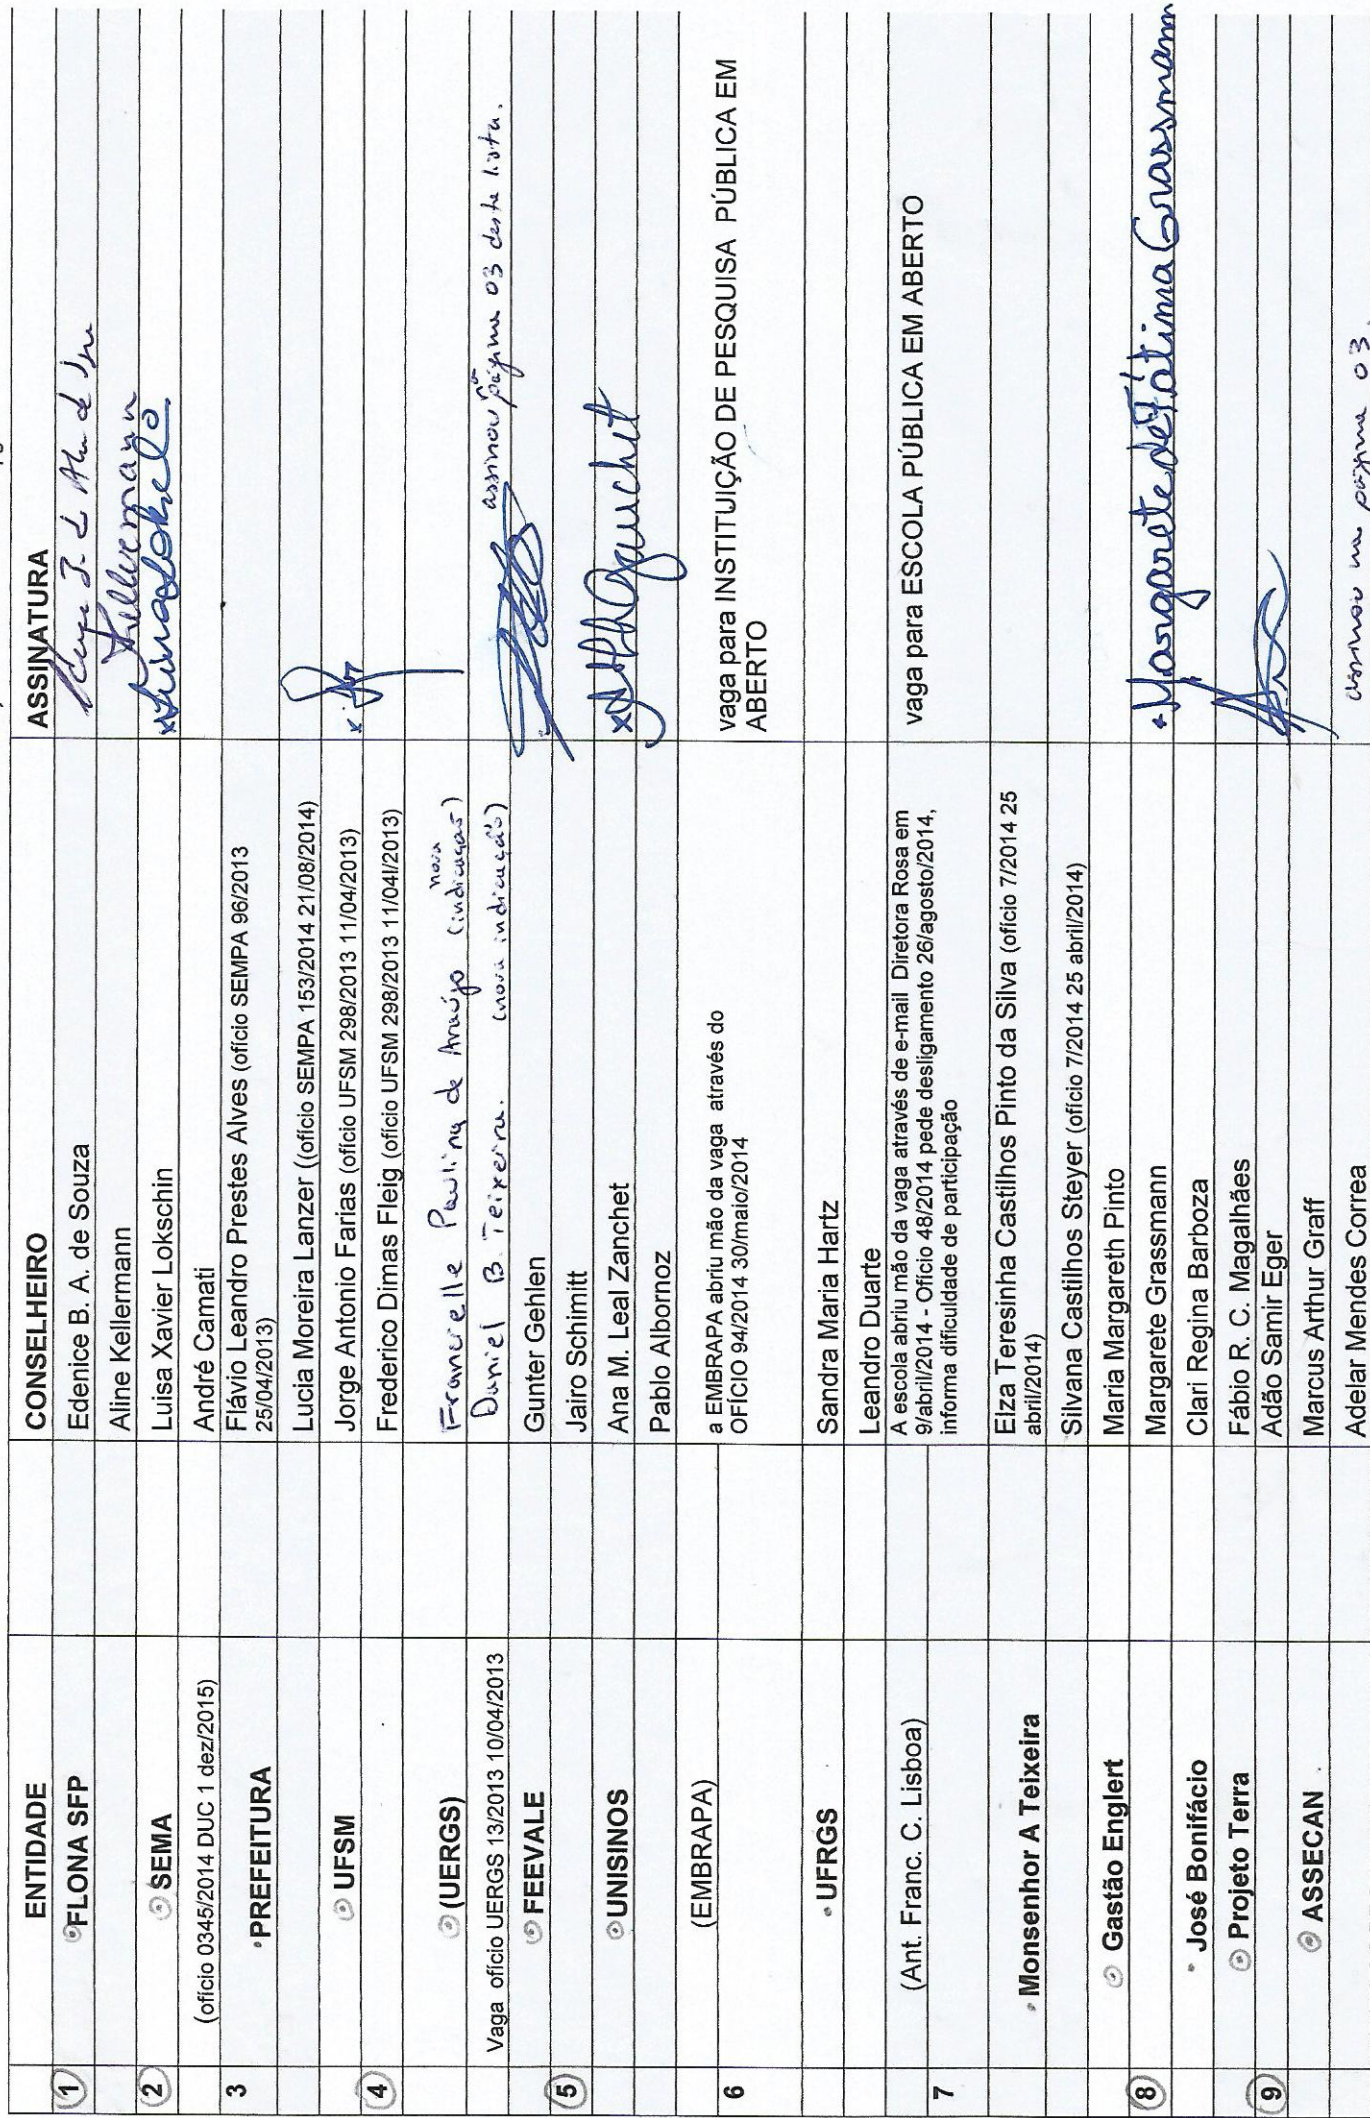 ENTIDADE CONSELHEIRO ASSINATURA
1 FLONA SFP Edenice B. A. de Souza
Aline Kellermann Kellermann
2 SEMA Luisa Xavier Lokschin
(ofício 0345/2014 DUC 1 dez/2015) André Camati
3 PREFEITURA Flávio Leandro Prestes Alves (ofício SEMPA 96/2013
25/04/2013)
Lucia Moreira Lanzer ((ofício SEMPA 153/2014 21/08/2014)
4 UFSM Jorge Antonio Farias (ofício UFSM 298/2013 11/04/2013)
Frederico Dimas Fleig (ofício UFSM 298/2013 11/04I/2013)
(UERGS) Francielle Paulina de Araújo (nova indicação)
Vaga ofício UERGS 13/2013 10/04/2013 Daniel B. Teixeira. (nova indicação) assinou página 03 desta lista.
5 FEEVALE Gunter Gehlen
Jairo Schimitt
UNISINOS Ana M. Leal Zanchet
Pablo Albornoz
6 (EMBRAPA) a EMBRAPA abriu mão da vaga através do
OFÍCIO 94/2014 30/maio/2014
vaga para INSTITUIÇÃO DE PESQUISA PÚBLICA EM
ABERTO
UFRGS Sandra Maria Hartz
Leandro Duarte
7 (Ant. Franc. C. Lisboa) A escola abriu mão da vaga através de e-mail Diretora Rosa em
9/abril/2014 - Ofício 48/2014 pede desligamento 26/agosto/2014,
informa dificuldade de participação
vaga para ESCOLA PÚBLICA EM ABERTO
Monsenhor A Teixeira Elza Teresinha Castilhos Pinto da Silva (ofício 7/2014 25
abril/2014)
Silvana Castilhos Steyer (ofício 7/2014 25 abril/2014)
8 Gastão Englert Maria Margareth Pinto
Margarete Grassmann Margarete de Fátima Grassmann
José Bonifácio Clari Regina Barboza
9 Projeto Terra Fábio R. C. Magalhães
Adão Samir Eger
ASSECAN Marcus Arthur Graff
Adelar Mendes Correa assinou na página 03.